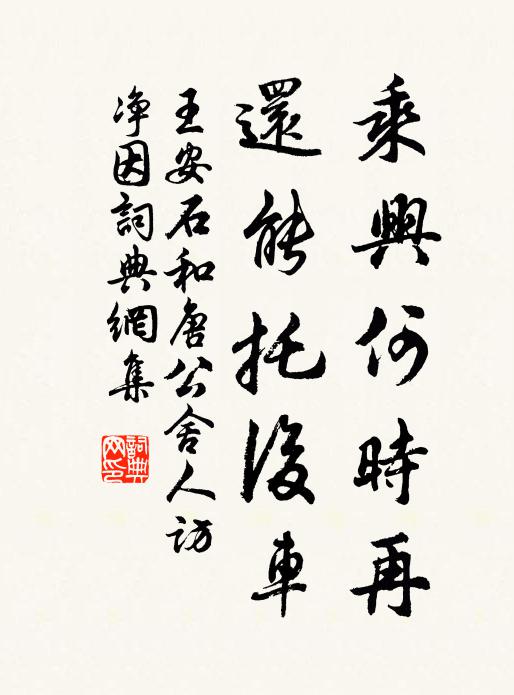 乘興何時再
還能托後車
王安石和唐公舍人訪
净因詞典網集
詞典
网印